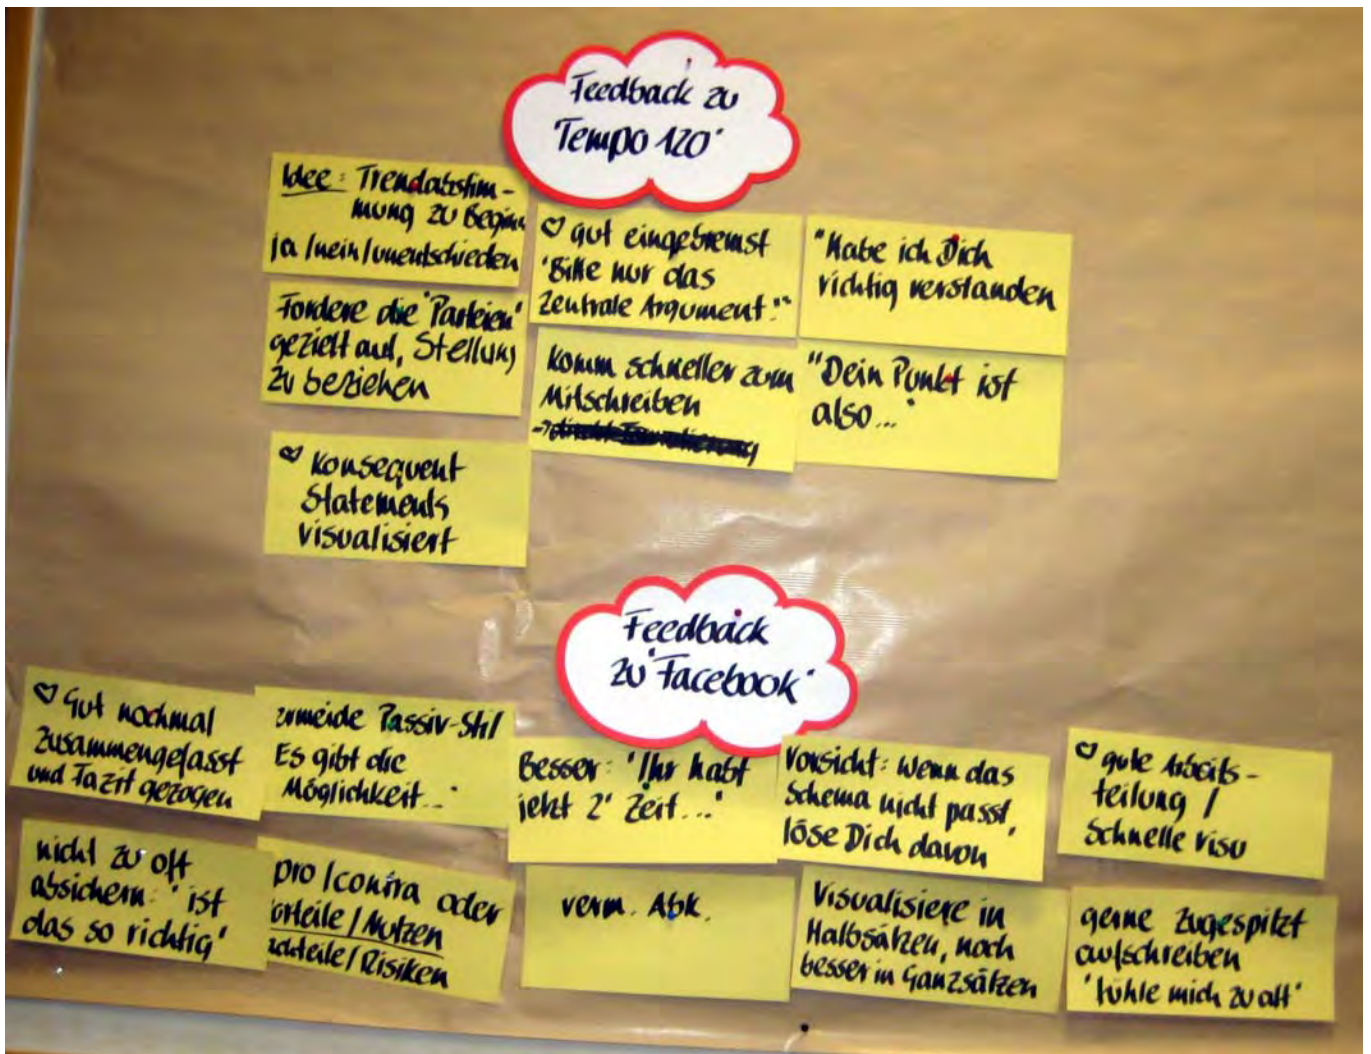 Feedback zu
"Tempo 120"
Idee: Trendabstim-
mung zu Beginn
ja/nein/unentschieden
Fordere die "Parteien"
gezielt auf, Stellung
zu beziehen
♡ Konsequent
Statements
visualisiert
♡ gut eingebremst
"Bitte nur das
Zentrale Argument!"
Komm schneller zum
Mitschreiben
"Habe ich Dich
richtig verstanden
"Dein Punkt ist
also..."
Feedback
zu "Facebook"
♡ Gut nochmal
zusammengefasst
und Fazit gezogen
nicht zu oft
absichern: "ist
das so richtig"
rmeide Passiv-Stil
Es gibt die
Möglichkeit..."
pro/contra oder
orteile/Nutzen
achteile/Risiken
Besser: "Ihr habt
jetzt 2' Zeit..."
verm. Abk.
Vorsicht: Wenn das
Schema nicht passt,
löse Dich davon
Visualisiere in
Halbsätzen, noch
besser in Ganzsätzen
♡ gute Arbeits-
teilung /
Schnelle Visu
gerne zugespitzt
aufschreiben
"fühle mich zu alt"